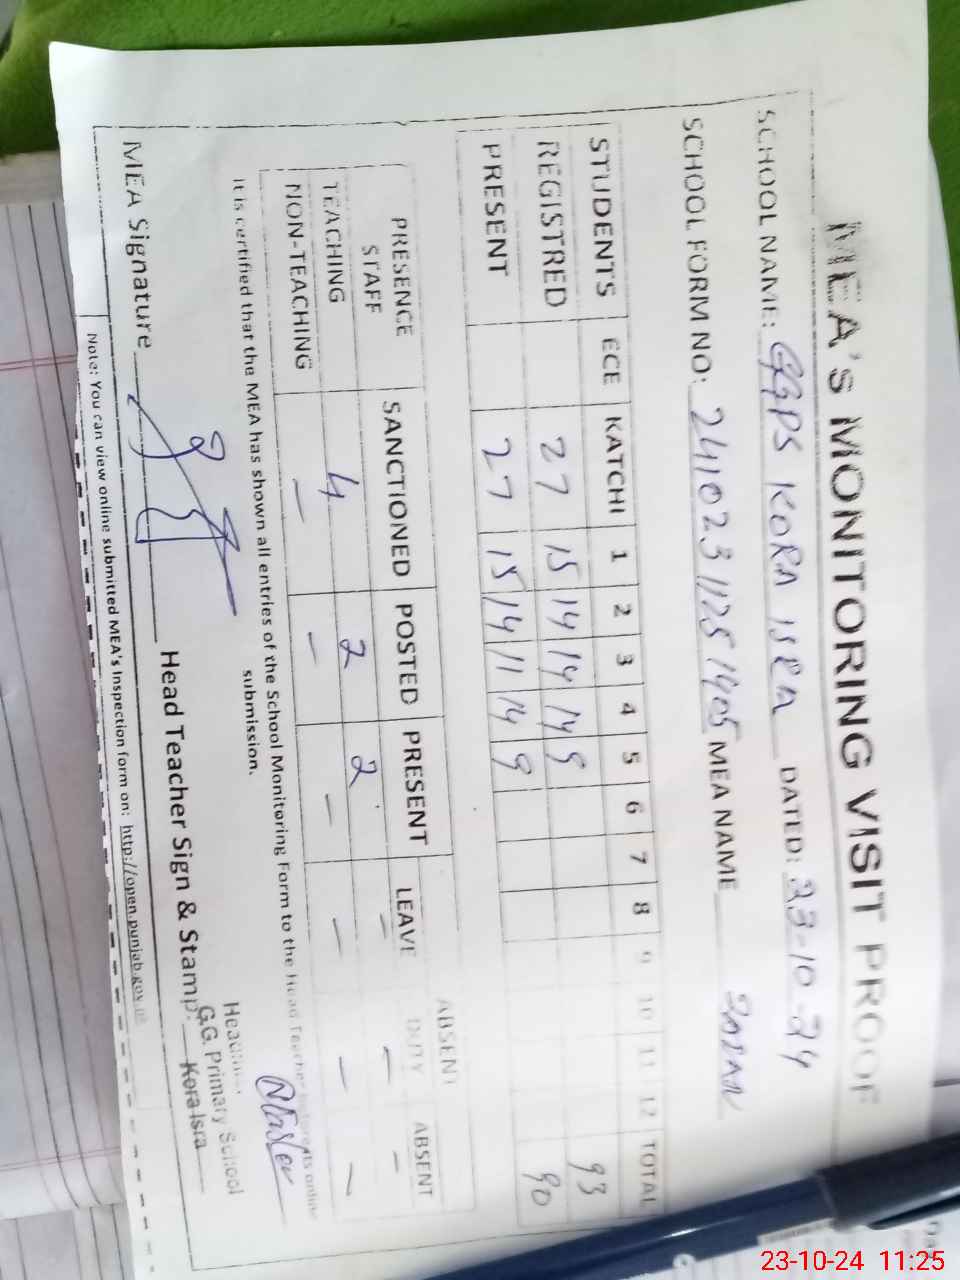 MEA's MONITORING VISIT PROOF
SCHOOL NAME: GGPS KORA ISRA DATED: 23-10-24
SCHOOL FORM NO: MEA NAME
STUDENTS ECE KATCHI 1 2 3 4 5 6 7 8 9 10 11 12 TOTAL
REGISTRED 27 15 14 14 14 9 93
PRESENT 27 15 14 11 14 9 90
PRESENCE STAFF SANCTIONED POSTED PRESENT LEAVE ABSENT DUTY ABSENT
TEACHING 4 2 2 – – –
NON-TEACHING – – – – – –
It is certified that the MEA has shown all entries of the School Monitoring Form to the Head Teacher before its online
submission.
MEA Signature Head Teacher Sign & Stamp:
G.G. Primary School
Kora Isra
Note: You can view online submitted MEA's Inspection form on: http://open.punjab.gov.pk
23-10-24 11:25